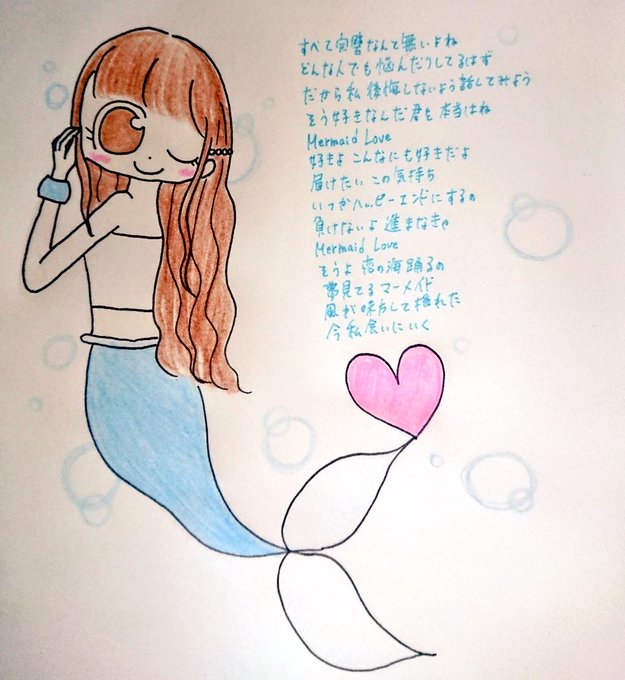 すべて完璧なんて無いよね
どんな人でも悩んだりしてるはず
だから私 後悔しないよう話してみよう
そう好きなんだ君を 本当はね
Mermaid Love
好きよ こんなにも好きだよ
届けたい この気持ち
いつかハッピーエンドにするの
負けないよ 進まなきゃ
Mermaid Love
そうよ 恋の海踊るの
夢見てる マーメイド
風が味方して揺れた
今私会いにいく